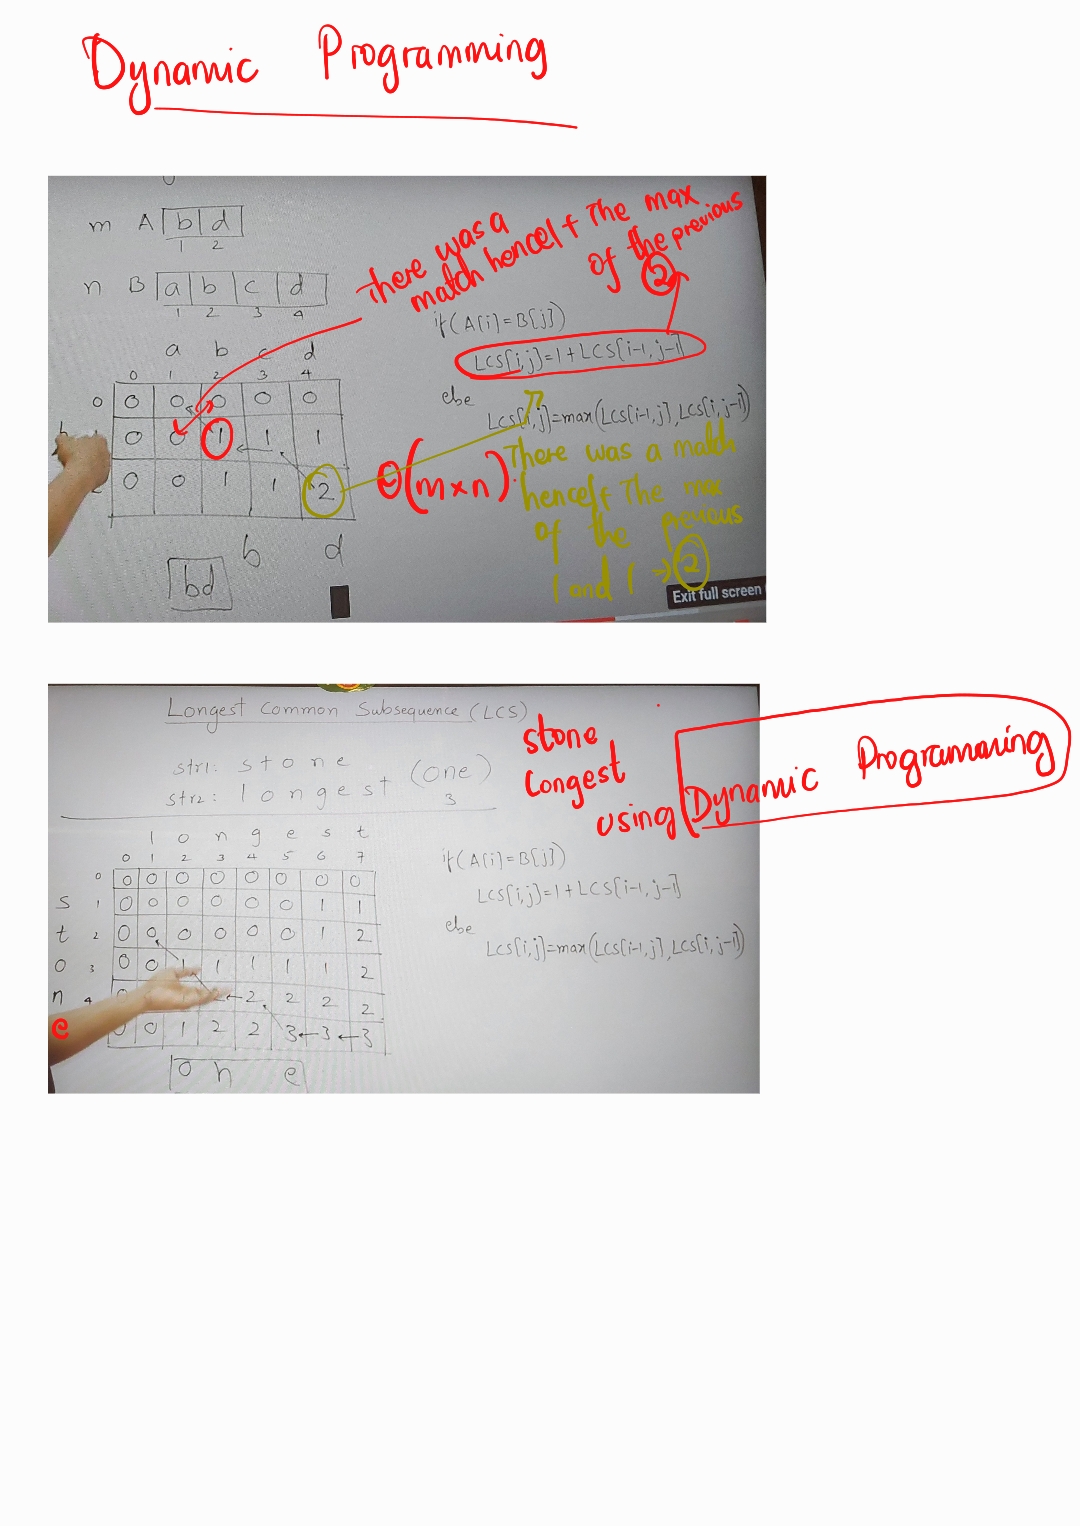 Dynamic Programming
m A b d
1 2
n B a b c d
1 2 3 4
There was a
match hence 1 + The max
of the previous
2
if (A[i] = B[j])
LCS[i, j] = 1 + LCS[i-1, j-1]
else
LCS[i, j] = max(LCS[i-1, j], LCS[i, j-1])
a b c d
0 1 2 3 4
0 0 0 0 0 0
0 0 1 1 1
0 0 1 1 2
b d
bd
θ(m×n).
There was a match
hence 1 + The max
of the previous
1 and 1 → 2
Exit full screen
Longest Common Subsequence (LCS)
str1: s t o n e
str2: l o n g e s t
(one)
3
stone
Longest
using Dynamic Programming
l o n g e s t
0 1 2 3 4 5 6 7
0 0 0 0 0 0 0 0 0
s 1 0 0 0 0 0 0 1 1
t 2 0 0 0 0 0 0 1 2
o 3 0 0 1 1 1 1 1 2
n 4 2 2 2 2 2
e 0 0 1 2 2 3 3 3
o n e
if (A[i] = B[j])
LCS[i, j] = 1 + LCS[i-1, j-1]
else
LCS[i, j] = max(LCS[i-1, j], LCS[i, j-1])